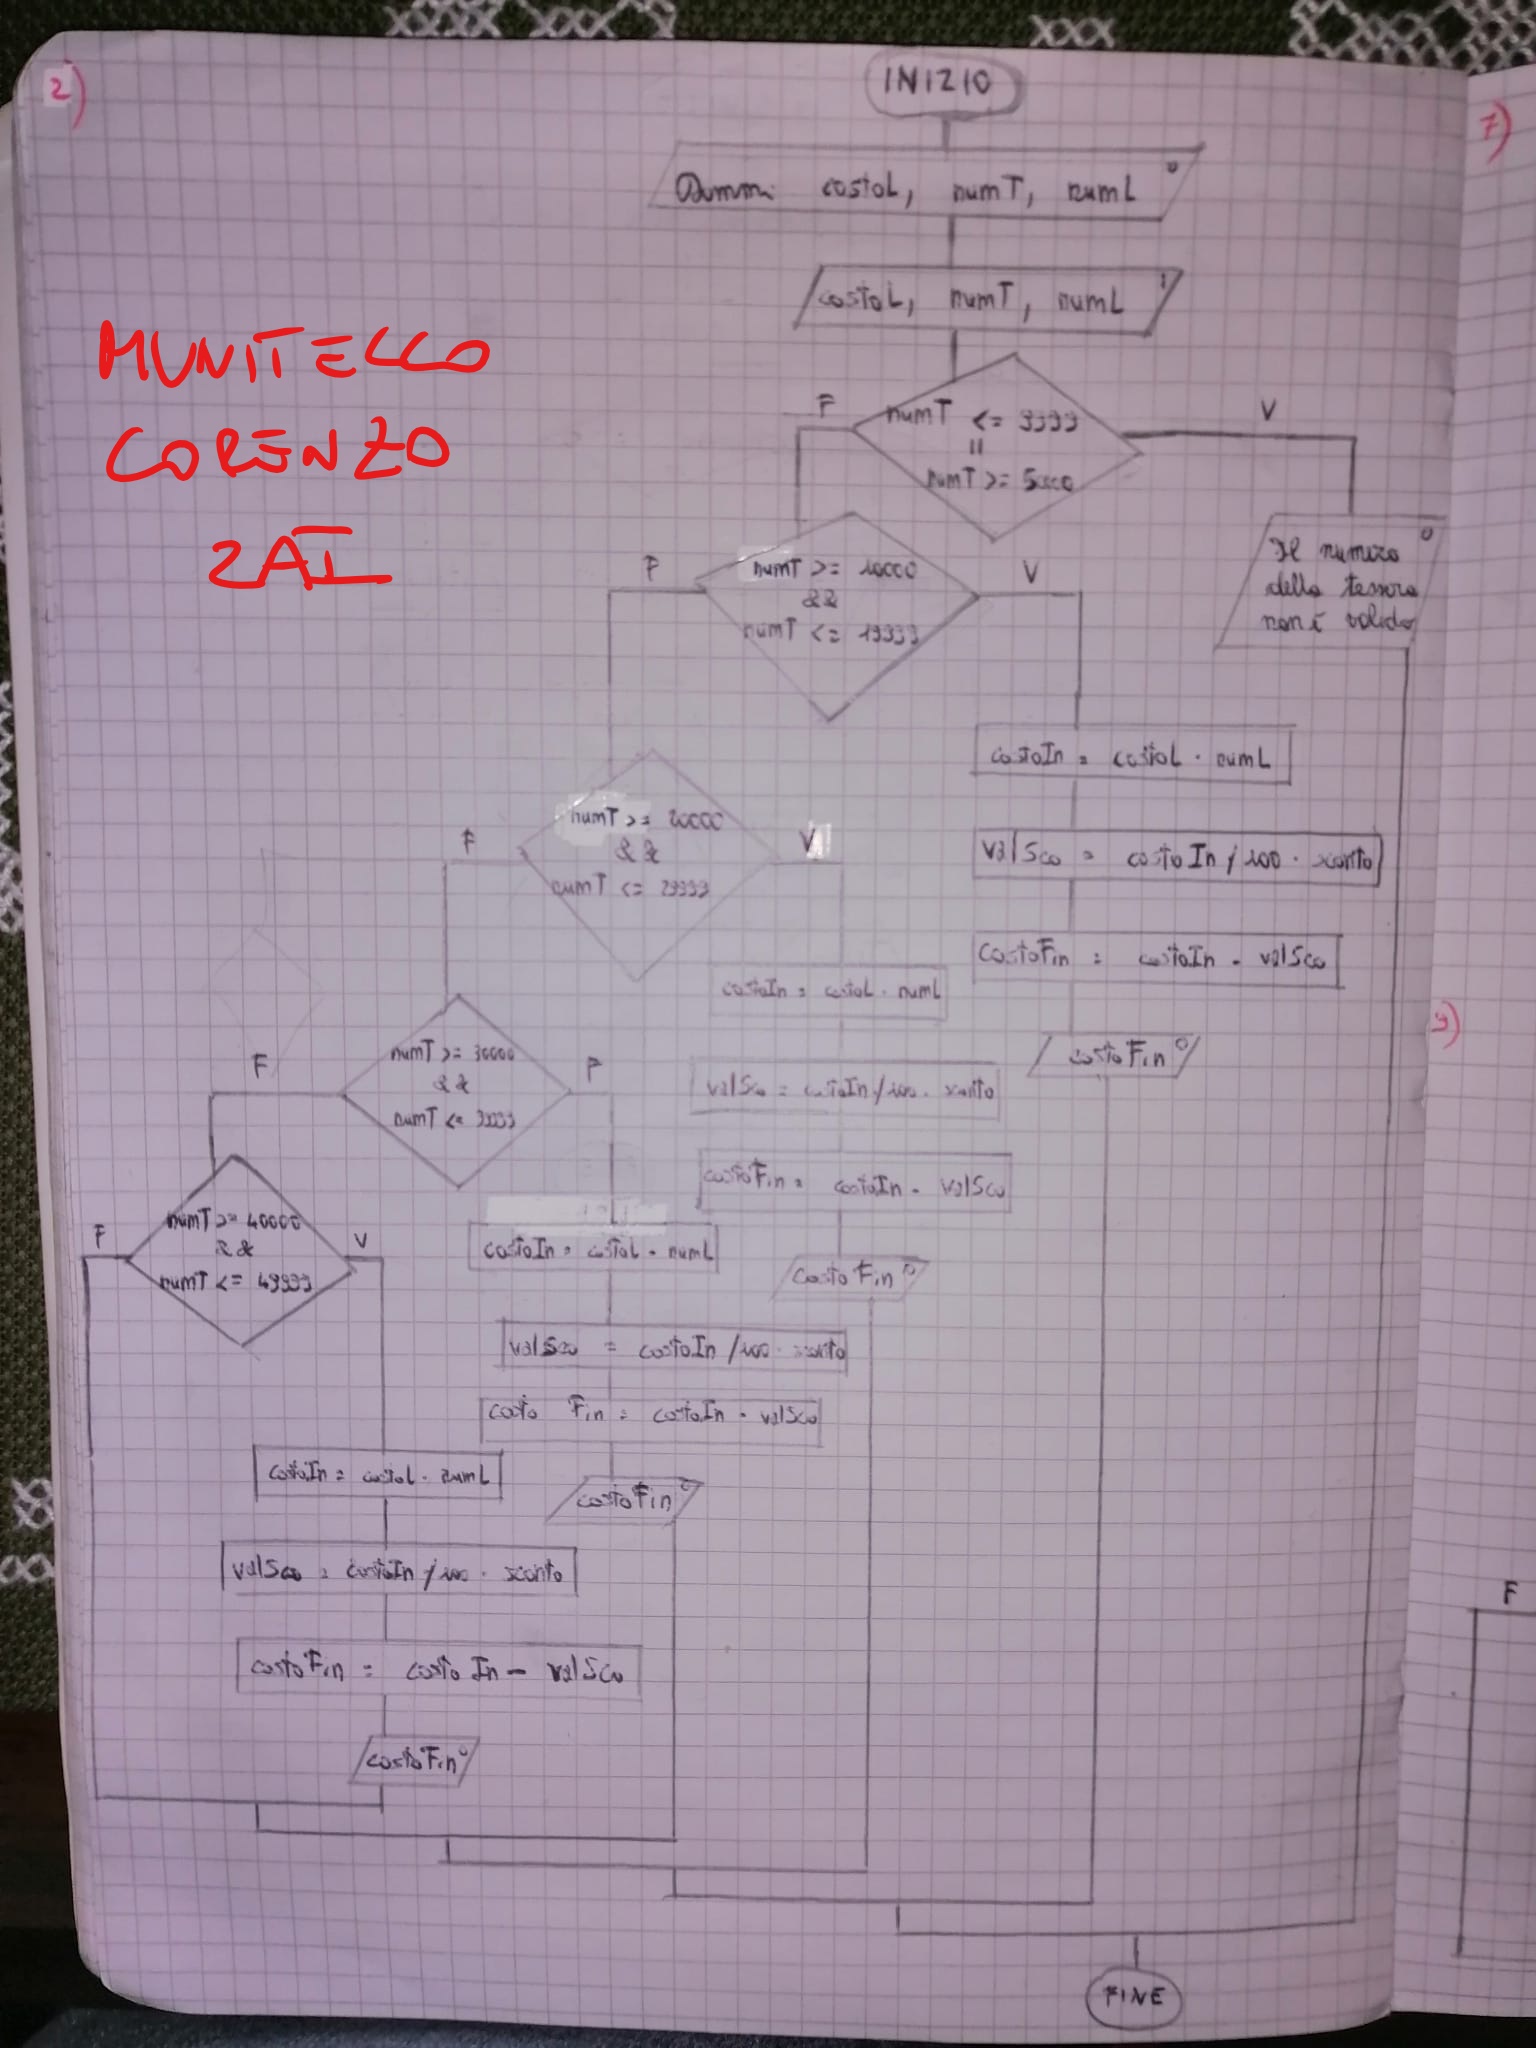 2)
INIZIO
7)
Dammi costoL, numT, numL
O
costoL, numT, numL
I
MUNITELLO
LORENZO
2AI
numT <= 9999
||
numT >= 5000
F
V
Il numero
della tessera
non è valido
O
numT >= 10000
&&
numT <= 19999
F
V
costoIn = costoL · numL
valSco = costoIn / 100 · sconto
costoFin = costoIn - valSco
costoFin O
numT >= 20000
&&
numT <= 29999
F
V
costoIn = costoL · numL
valSco = costoIn / 100 · sconto
costoFin = costoIn - valSco
costoFin O
9)
numT >= 30000
&&
numT <= 39999
F
F
costoIn = costoL · numL
valSco = costoIn / 100 · sconto
costo Fin = costoIn - valSco
costoFin O
numT >= 40000
&&
numT <= 49999
F
V
costoIn = costoL · numL
valSco = costoIn / 100 · sconto
costoFin = costoIn - valSco
costoFin O
F
FINE